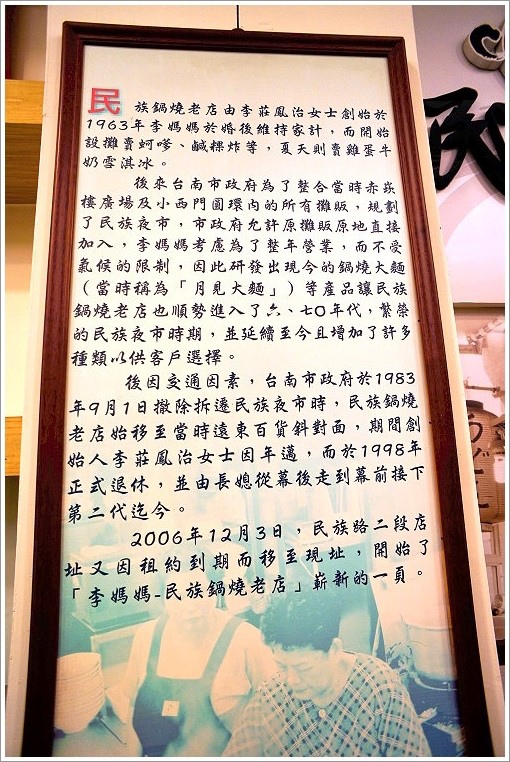 民族鍋燒老店由李莊鳳治女士創始於
1963年李媽媽於婚後維持家計，而開始
設攤賣蚵嗲、鹹粿炸等，夏天則賣雞蛋牛
奶雪淇冰。
後來台南市政府為了整合當時赤崁
樓廣場及小西門圓環內的所有攤販，規劃
了民族夜市，市政府允許原攤販原地直接
加入，李媽媽考慮為了整年營業，而不受
氣候的限制，因此研發出現今的鍋燒大麵
（當時稱為「月見大麵」）等產品讓民族
鍋燒老店也順勢進入了六、七〇年代，繁榮
的民族夜市時期，並延續至今且增加了許多
種類以供客戶選擇。
後因交通因素，台南市政府於1983
年9月1日撤除拆遷民族夜市時，民族鍋燒
老店始移至當時遠東百貨斜對面，期間創
始人李莊鳳治女士因年邁，而於1998年
正式退休，並由長媳從幕後走到幕前接下
第二代迄今。
2006年12月3日，民族路二段店
址又因租約到期而移至現址，開始了
「李媽媽-民族鍋燒老店」嶄新的一頁。